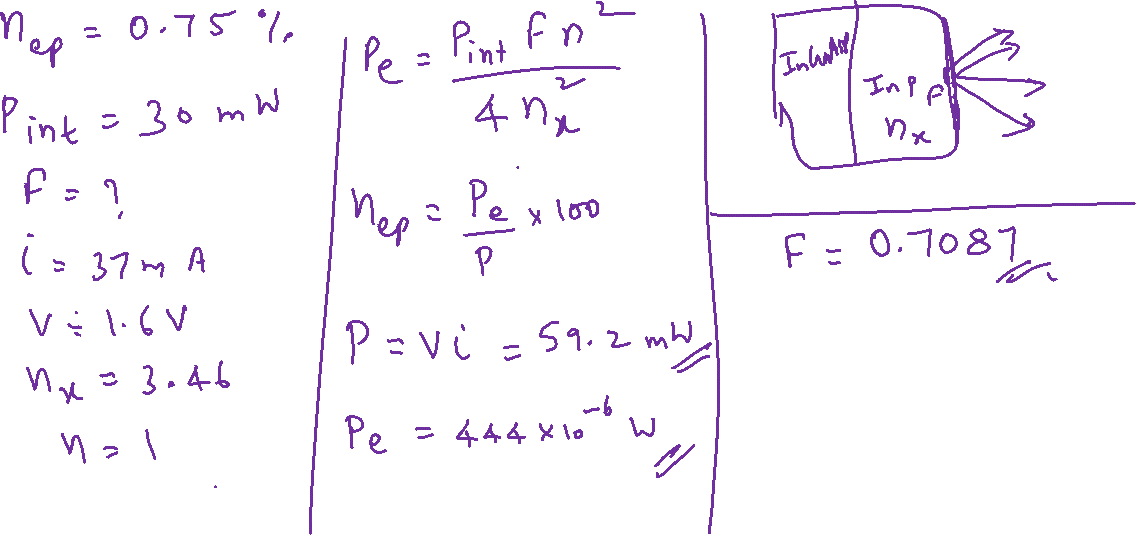 η_ep = 0.75 %
P_int = 30 mW
F = ?
i = 37 m A
V = 1.6 V
n_x = 3.46
n = 1
P_e = P_int F n² / 4 n_x²
η_ep = P_e / P × 100
P = V i = 59.2 mW
P_e = 444 × 10⁻⁶ W
InP F
n_x
F = 0.7087